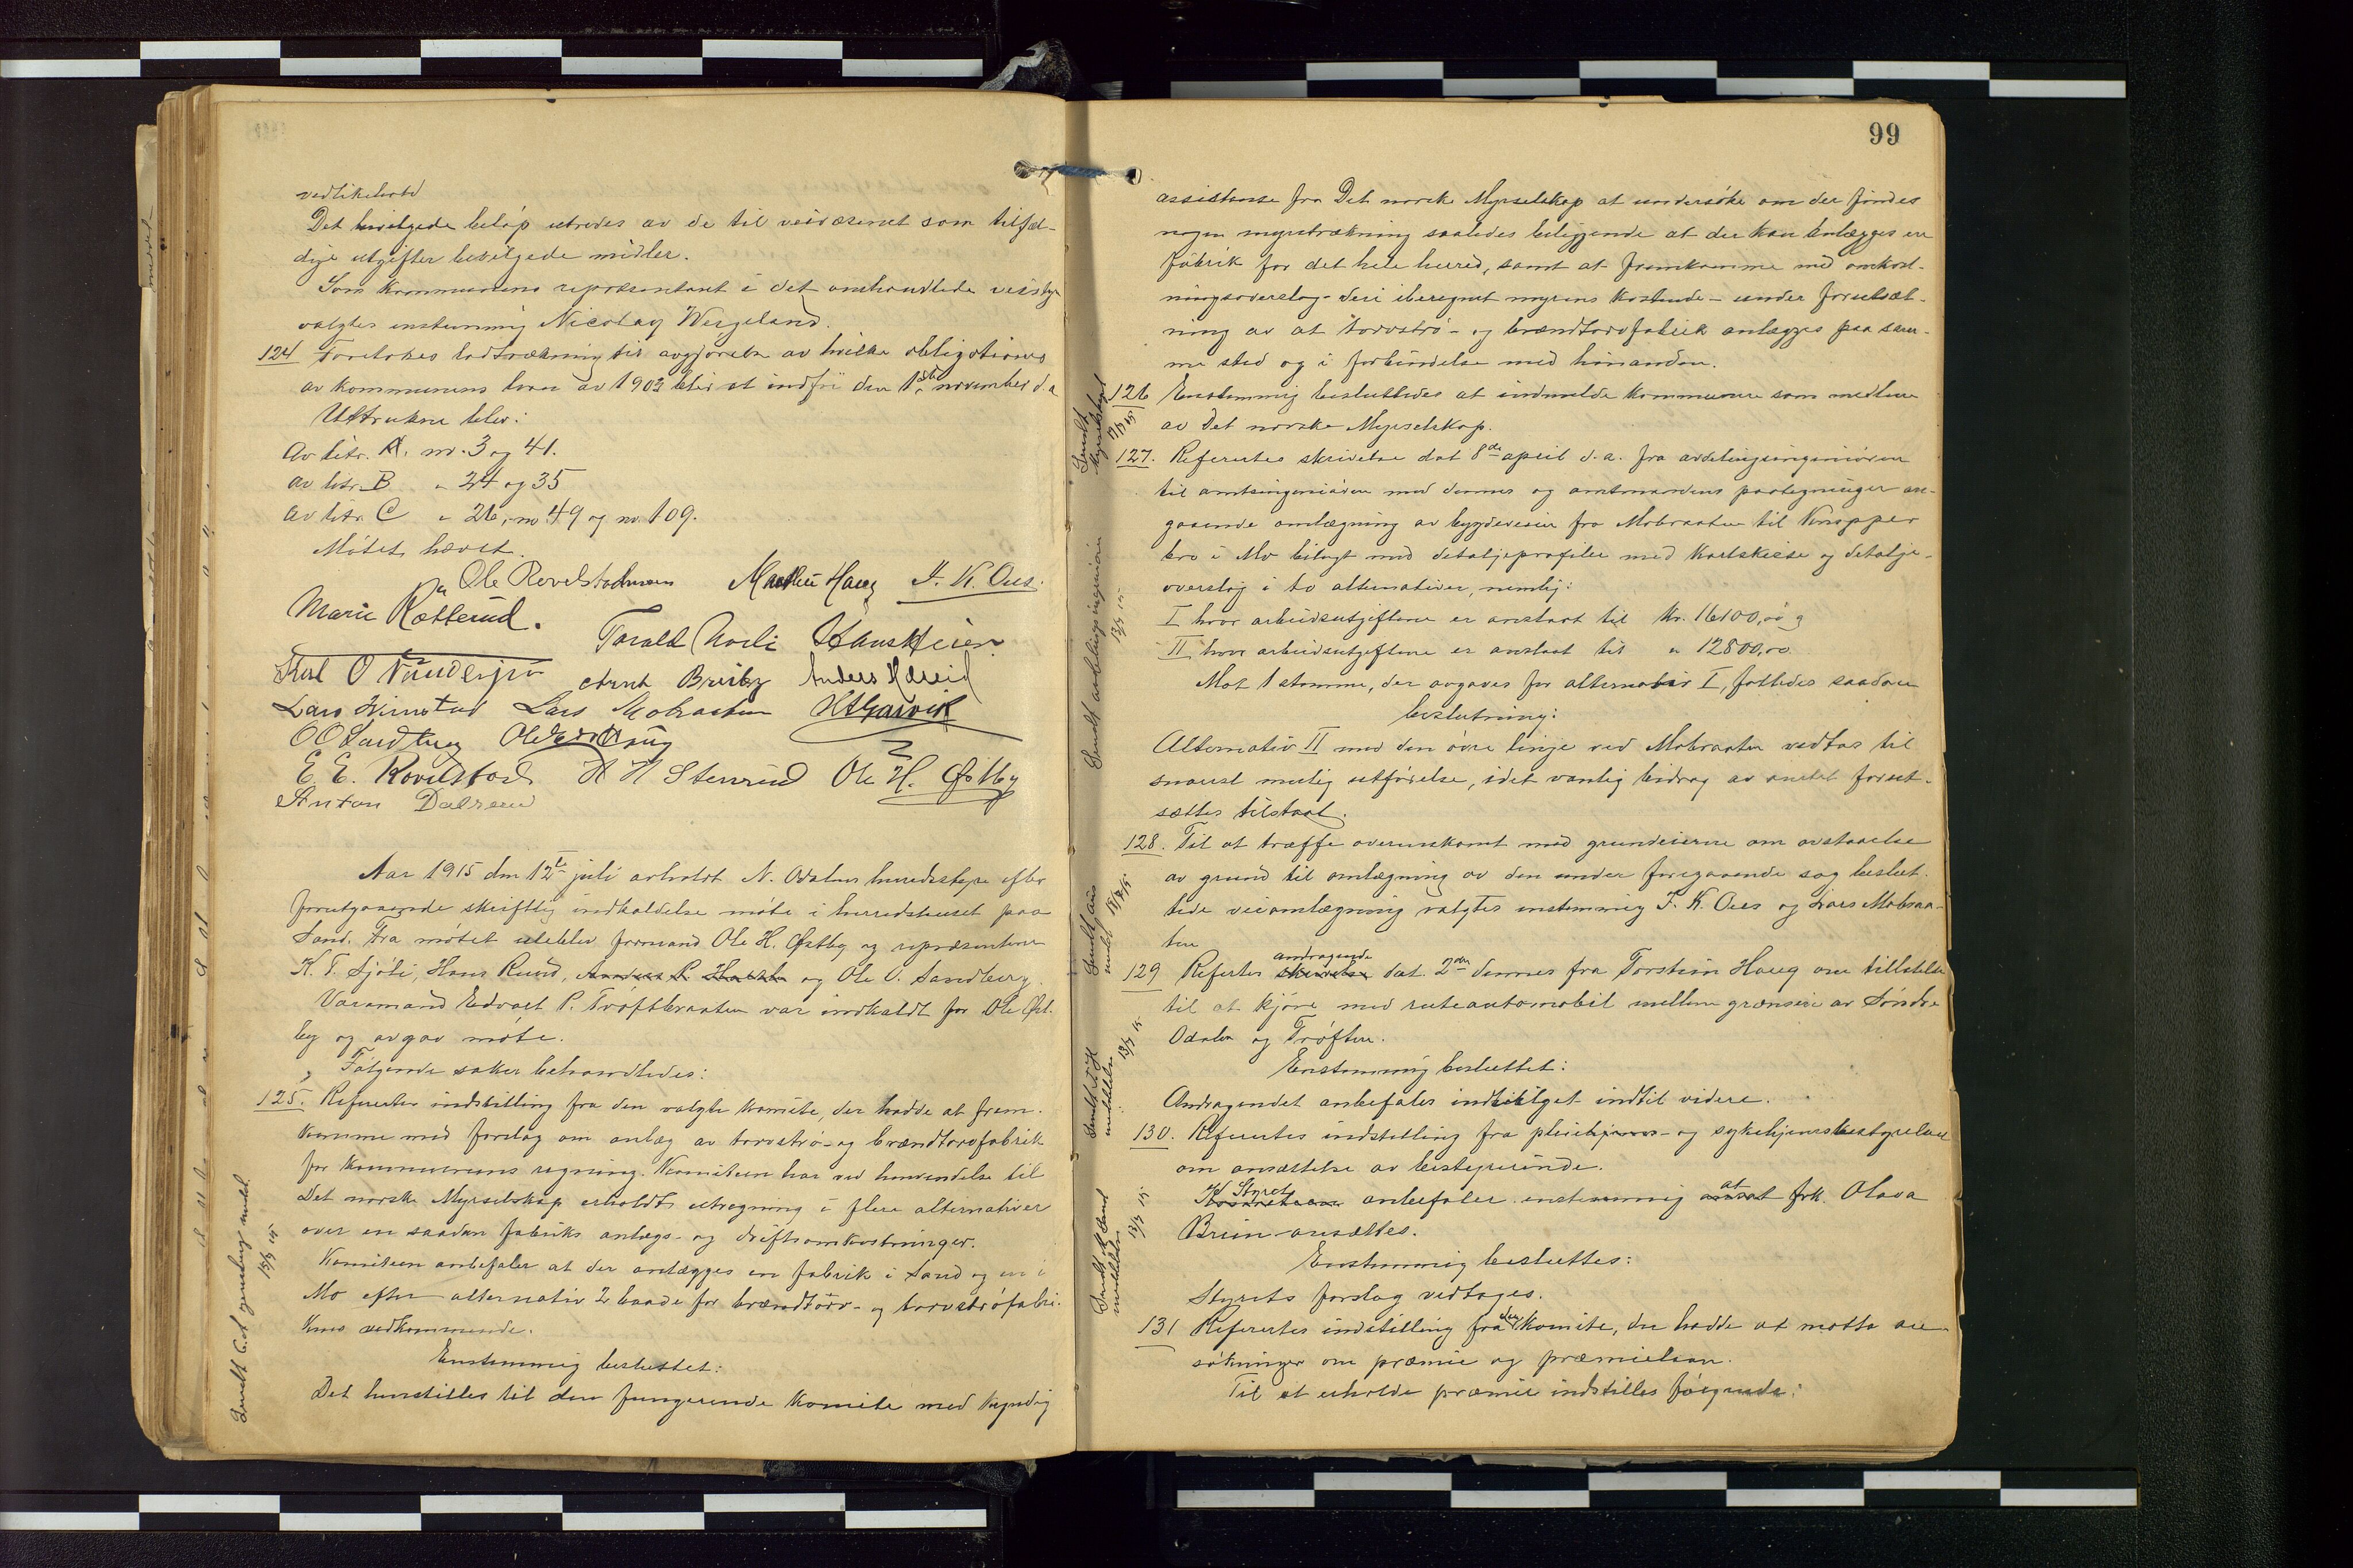 vedlikehold
Det bevilgede beløp utredes av de til veivæsenet som tilfæl-
dige utgifter bevilgede midler.
Som kommunens repræsentant i det omhandlede veistyr
valgtes enstemmig Nicolay Wergeland.
124 Foretokes lodtrækning til avgjørelse av hvilke obligationer
av kommunens laan av 1903 blir at indfri den 1ste november d.a
Uttrukne blev:
Av litr. A. nr. 3 og 41.
Av litr. B " 24 og 35
Av litr. C " 26, nr 49 og nr. 109.
Møtet hævet.
Ole Rovelstadmoen Marthin Haug T. K. Ous.
Marie Rætterud. Torald Norli Hans Heier
Karl O Arnt Breiby Anders Hareid
Lars Lars Mobraaten
O O Sandberg Ole
E. E. Rovelstad H H Stenrud Ole H. Østby
Anton Dalseu
Aar 1915 den 12te juli avholdt N. Odalens herredsstyre efter
forutgaaende skriftlig indkaldelse møte i herredshuset paa
Sand. Fra møtet uteblev formand Ole H. Østby og repræsentene
K. T. Sjøli, Hans Ruud, Anders P. og Ole O. Sandberg.
Varamand Edvart P. Trøftbraaten var indkaldt for Ole Øst-
by og avgav møte.
Følgende saker behandledes:
125. Refertes indstilling fra den valgte komite, der hadde at frem-
komme med forslag om anlæg av torvstrø- og brændtorvfabrik
for kommunens regning. Komiteen har ved henvendelse til
Det norske Myrselskap erholdt utregning i flere alternativer
over en saadan fabriks anlægs- og driftsomkostninger.
Komiteen anbefaler at der anlægges en fabrik i Sand og en i
Mo efter alternativ 2 baade for brændtorv- og torvstrøfabri-
kens vedkommende.
Enstemmig besluttet:
Det henstilles til den fungerende komite med kyndig
Sendt C. of genberg medd.
13/7 15
99
assistanse fra Det norske Myrselskap at undersøke om der findes
nogen myrstrækning saaledes beliggende at der kan anlægges en
fabrik for det hele herred, samt at fremkomme med omkost-
ningsoverslag - deri iberegnet myrens kostende - under forutsæt-
ning av at torvstrø- og brændtorvfabrik anlægges paa sam-
me sted og i forbindelse med hinanden.
126 Enstemmig besluttedes at indmelde kommunen som medlem
av Det norske Myrselskap.
Sendt Myrselskapet
127. Refertes skrivelse dat 8de april d.a. fra avdelingsingeniøren
til amtsingeniøren med dennes og amtmandens paategninger an-
gaaende omlægning av bygdeveien fra Mobraaten til Knapper
bro i Mo bilagt med detaljeprofiler med kartskisse og detalje-
overslag i to alternativer, nemlig:
I hvor arbeidsutgiftene er anslaat til kr. 16100,00 og
II hvor arbeidsutgiftene er anslaat til " 12800,00
Mot 1 stemme, der avgaves for alternativ I, fattedes saadan
beslutning:
Alternativ II med den øvre linje ved Mobraaten vedtas til
snarest mulig utførelse, idet vanlig bidrag av amtet forut-
sættes tilstaat.
Sendt avdelingsingeniør
13/7 15
128. Til at træffe overenskomst med grundeierne om avstaaelse
av grund til omlægning av den under foregaaende sag beslut-
tede veiomlægning valgtes enstemmig T. K. Ous og Lars Mobraa-
ten
129 Refertes skrivelse andragende dat. 2den dennes fra Torstein Haug om tilladelse
til at kjøre med ruteautomobil mellem grænsen av Søndre
Odalen og Trøften.
Enstemmig besluttet:
Andragendet anbefales indvilget indtil videre.
130. Refertes indstilling fra pleiehjems- og sykehjemsbestyrelsen
om ansættelse av bestyrerinde.
Styret anbefaler enstemmig at frk. Olava
Bruun ansættes.
Enstemmig besluttes:
Styrets forslag vedtages.
13/7 15
131 Refertes indstilling fra den komite, der hadde at motta an-
søkninger om præmie og præmielaan.
Til at erholde præmie indstilles følgende: